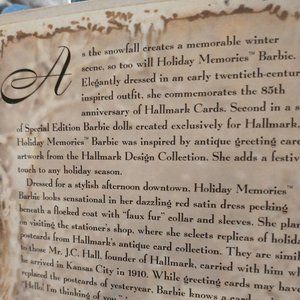 As the snowfall creates a memorable winter
scene, so too will Holiday Memories™ Barbie.
Elegantly dressed in an early twentieth-centur
inspired outfit, she commemorates the 85th
anniversary of Hallmark Cards. Second in a s
of Special Edition Barbie dolls created exclusively for Hallmark,
Holiday Memories™ Barbie was inspired by antique greeting car
artwork from the Hallmark Design Collection. She adds a festiv
touch to any holiday season.
Dressed for a stylish afternoon downtown, Holiday Memories™
Barbie looks sensational in her dazzling red satin dress peeking
beneath a floked coat with "faux fur" collar and sleeves. She plan
on visiting the stationer's shop, where she selects replicas of holida
postcards from Hallmark's antique card collection. They are simil
to those Mr. J.C. Hall, founder of Hallmark, carried with him wh
he arrived in Kansas City in 1910. While greeting cards may have
replaced the postcards of yesteryear, Barbie knows a card
"Hello! I'm thinking of you"